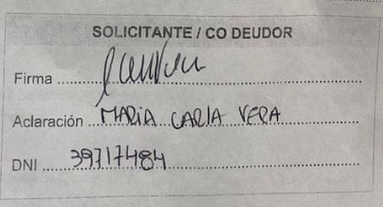 SOLICITANTE / CO DEUDOR
Firma
Aclaración MARIA CARLA VERA
DNI 39717484